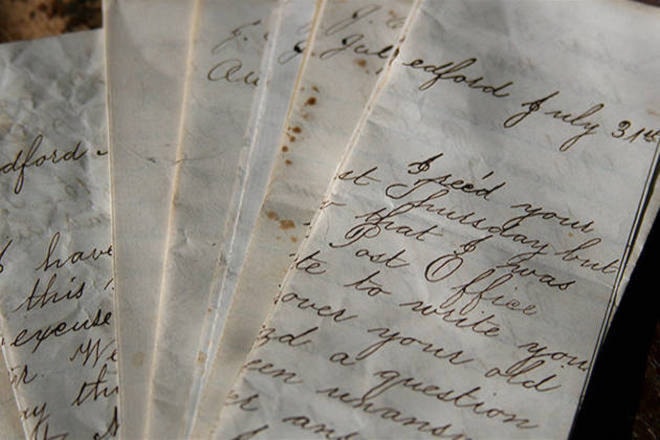 dford
have
this
excuse
r. We
ay thi
Au
Jul
edford July 31st
I rec'd your
st Thursday but
that I was
Post Office
te to write you
over your old
d a question
een unansw